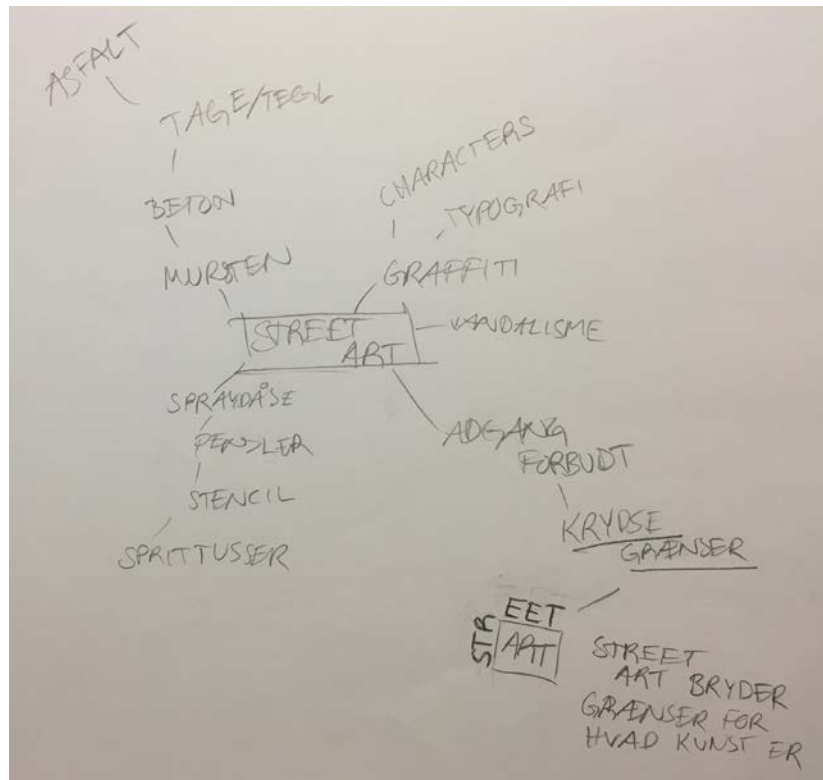 ASFALT
TAGE/TEGL
BETON
MURSTEN
CHARACTERS
TYPOGRAFI
GRAFFITI
STREET
ART
VANDALISME
SPRAYDÅSE
PENSLER
STENCIL
SPRITTUSSER
ADGANG
FORBUDT
KRYDSE
GRÆNSER
STR
EET
ART
STREET
ART BRYDER
GRÆNSER FOR
HVAD KUNST ER